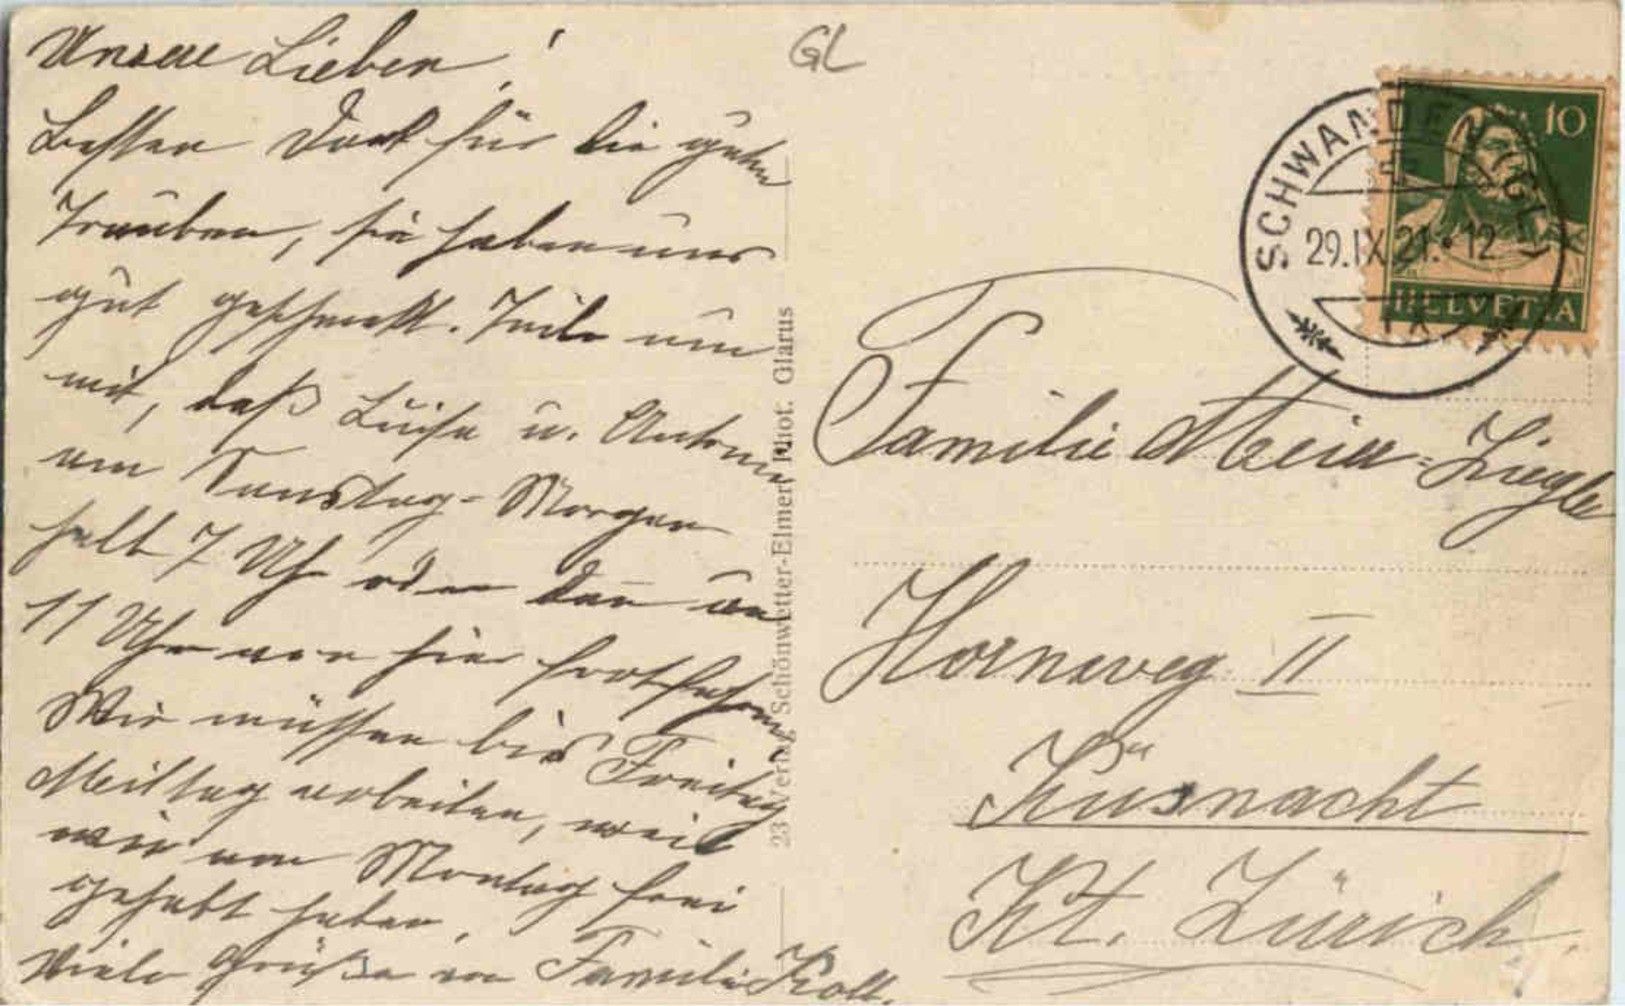 Unsere Lieben!
Besten Dank für die guten
Trauben, sie haben uns
gut geschmekt. Teile nun
mit, daß Luise u. Anton
am Samstag-Morgen
halb 7 Uhr oder dan um
11 Uhr von hier fortfahren
Wir müssen bis Freitag
Mittag arbeiten, weil
wir am Montag frei
gehabt haben,
Viele Grüße von Familie
GL
SCHWANDEN (GL)
29.IX.21. 12
IX
10
HELVETIA
23 Verlag Schönwetter-Elmer, Phot. Glarus
Familie Meier-Ziegler
Hornweg II
Küsnacht
Kt. Zürich.